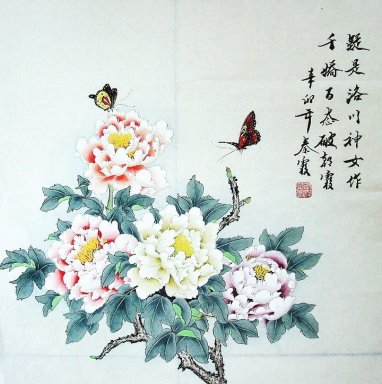 疑是洛川神女作
千娇百态破朝霞
辛卯年春霞